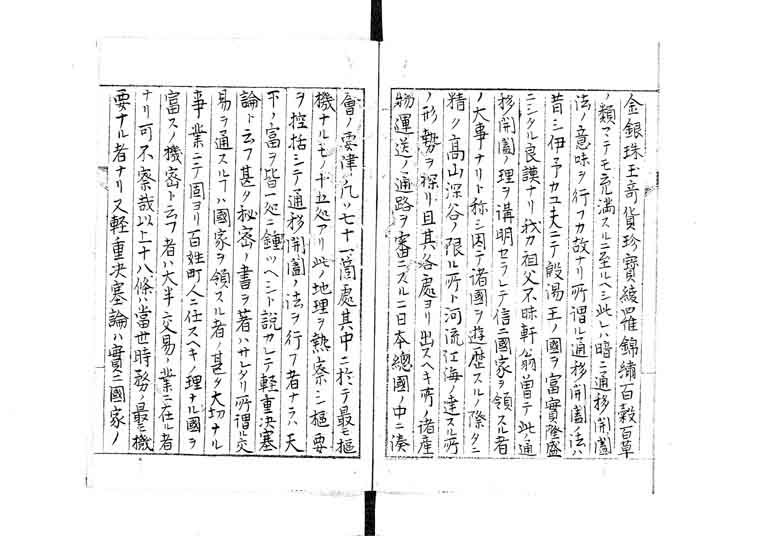 金銀珠玉奇貨珍寳綾羅錦繡百穀百草
ノ類マテモ充滿スルニ至ルヘシ此レハ暗ニ通移開闔
法ノ意味ヲ行フカ故ナリ所謂ル通移開闔ノ法ハ
昔シ伊予カ工夫ニテ殷湯王ノ國ヲ富實隆盛
ニシタル良謨ナリ我カ祖父不昧軒翁曽テ此ノ通
移開闔ノ理ヲ講明セラレテ信ニ國家ヲ領スル者
ノ大事ナリト称シ因テ諸國ヲ遊歴スルノ際タニ
精ク高山深谷ノ限ル所ト河流江海ノ達スル所
ノ形勢ヲ探リ且其各處ヨリ出スヘキ所ノ諸産
物運送ノ通路ヲ審ニスルニ日本總國ノ中ニ湊
會ノ要津凡ソ七十一箇處其中ニ於テ最モ樞
機ナルモノ十五処アリ此ノ地理ヲ熟察シ樞要
ヲ控括シテ通移開闔ノ法ヲ行フ者ナラハ天
下ノ富ヲ皆一処ニ鍾ツヘシト説カレテ軽重决塞
論ト云フ甚タ秘密ノ書ヲ著ハサレタリ所謂ル交
易ヲ通スルハ國家ヲ領スル者ノ甚タ大切ナル
事業ニテ固ヨリ百姓町人ニ任スヘキノ理ナル國ヲ
富スノ機密ト云フ者ハ大半交易ノ業ニ在ル者
ナリ可不察哉以上十八條ハ當世時務ノ最モ機
要ナル者ナリ又軽重决塞論ハ實ニ國家ノ